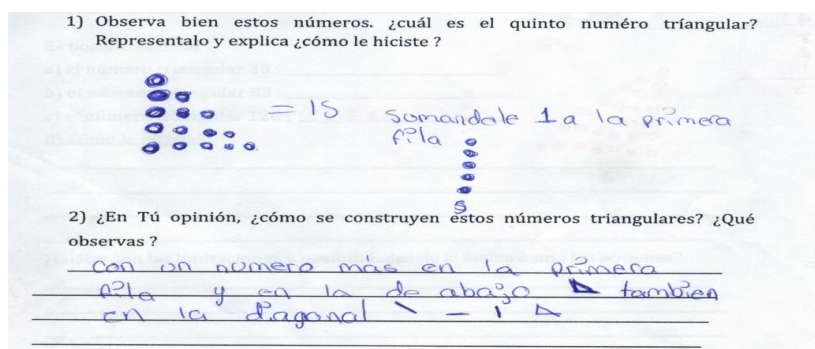 1) Observa bien estos números. ¿cuál es el quinto numéro tríangular?
Representalo y explica ¿cómo le hiciste ?
= 15 somandole 1 a la primera
fila
5
2) ¿En Tú opinión, ¿cómo se construyen estos números triangulares? ¿Qué
observas ?
con un numero más en la primera
fila y en la de abajo tambien
en la diagonal